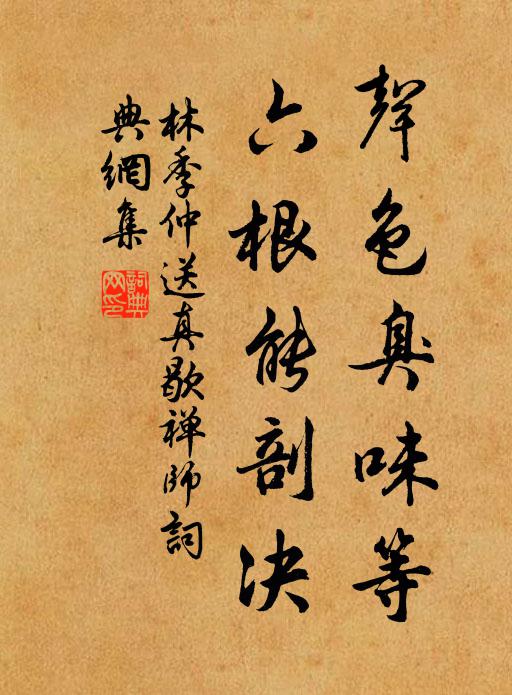 聲色臭味等
六根能剖決
林季仲送真歇禅師詞
典網集
詞典网印